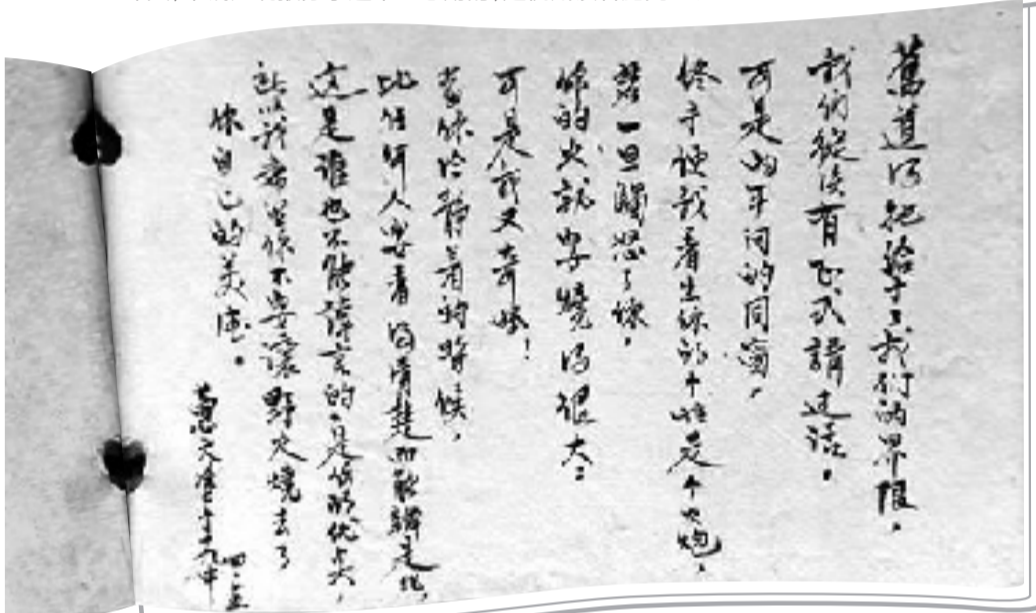 舊道德把給予了我们的界限，
我们縱没有正式講过话。
可是两年间的同窗，
终于使我看出你的个性是个火炮，
若一旦觸怒了你，
你的火就要燒得很大；
可是我又奇怪！
当你冷静着的時候，
比任何人要看得清楚而敢辯是非，
这是谁也不能諱言的是你的优点，
所以我希望你不要讓野火燒去了
你自己的美德。
四、五